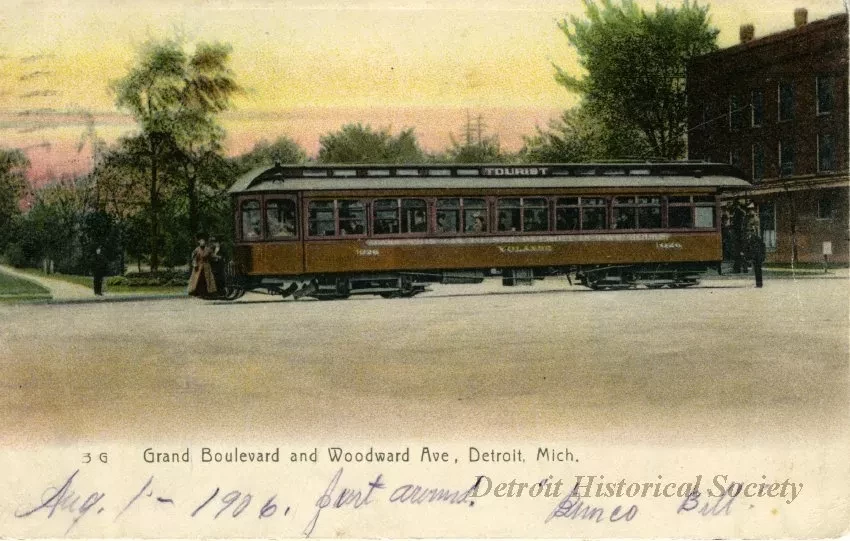 TOURIST
YOLANDE
1026 1026
3 G Grand Boulevard and Woodward Ave, Detroit, Mich.
Aug. 1 - 1906. Just around. "Bunco Bill".
Detroit Historical Society